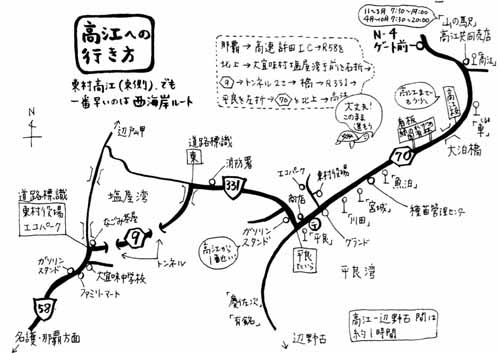 高江への
行き方
東村高江(東側)でも
一番早いのは西海岸ルート
那覇→高速 許田IC→R58を
北上→大宜味村塩屋湾手前を右折→
⑨→トンネル2こ→橋→R331→
平良を左折→70を北上→高江
11〜3月 7:30〜19:00
4月〜10月 7:30〜20:00
「山の駅」
高江共同売店
N-4
ゲート前
「高江」
高江まで
もう少し
高江橋
「車」
看板
大泊橋
大丈夫!
このまま
進もう
70
N
4
辺戸岬
道路標識
東
消防署
エコパーク
東村役場
「魚泊」
「宮城」
種苗管理センター
「川田」
グランド
塩屋湾
331
道路標識
東村役場
エコパーク
なごみ茶屋
9
トンネル
商店
ガソリン
スタンド
高江から
1番近い
「平良」
平良
たいら
平良湾
ガソリン
スタンド
大宜味中学校
ファミリーマート
58
名護・那覇方面
「慶佐次」
「有銘」
辺野古
高江−辺野古間は
約1時間